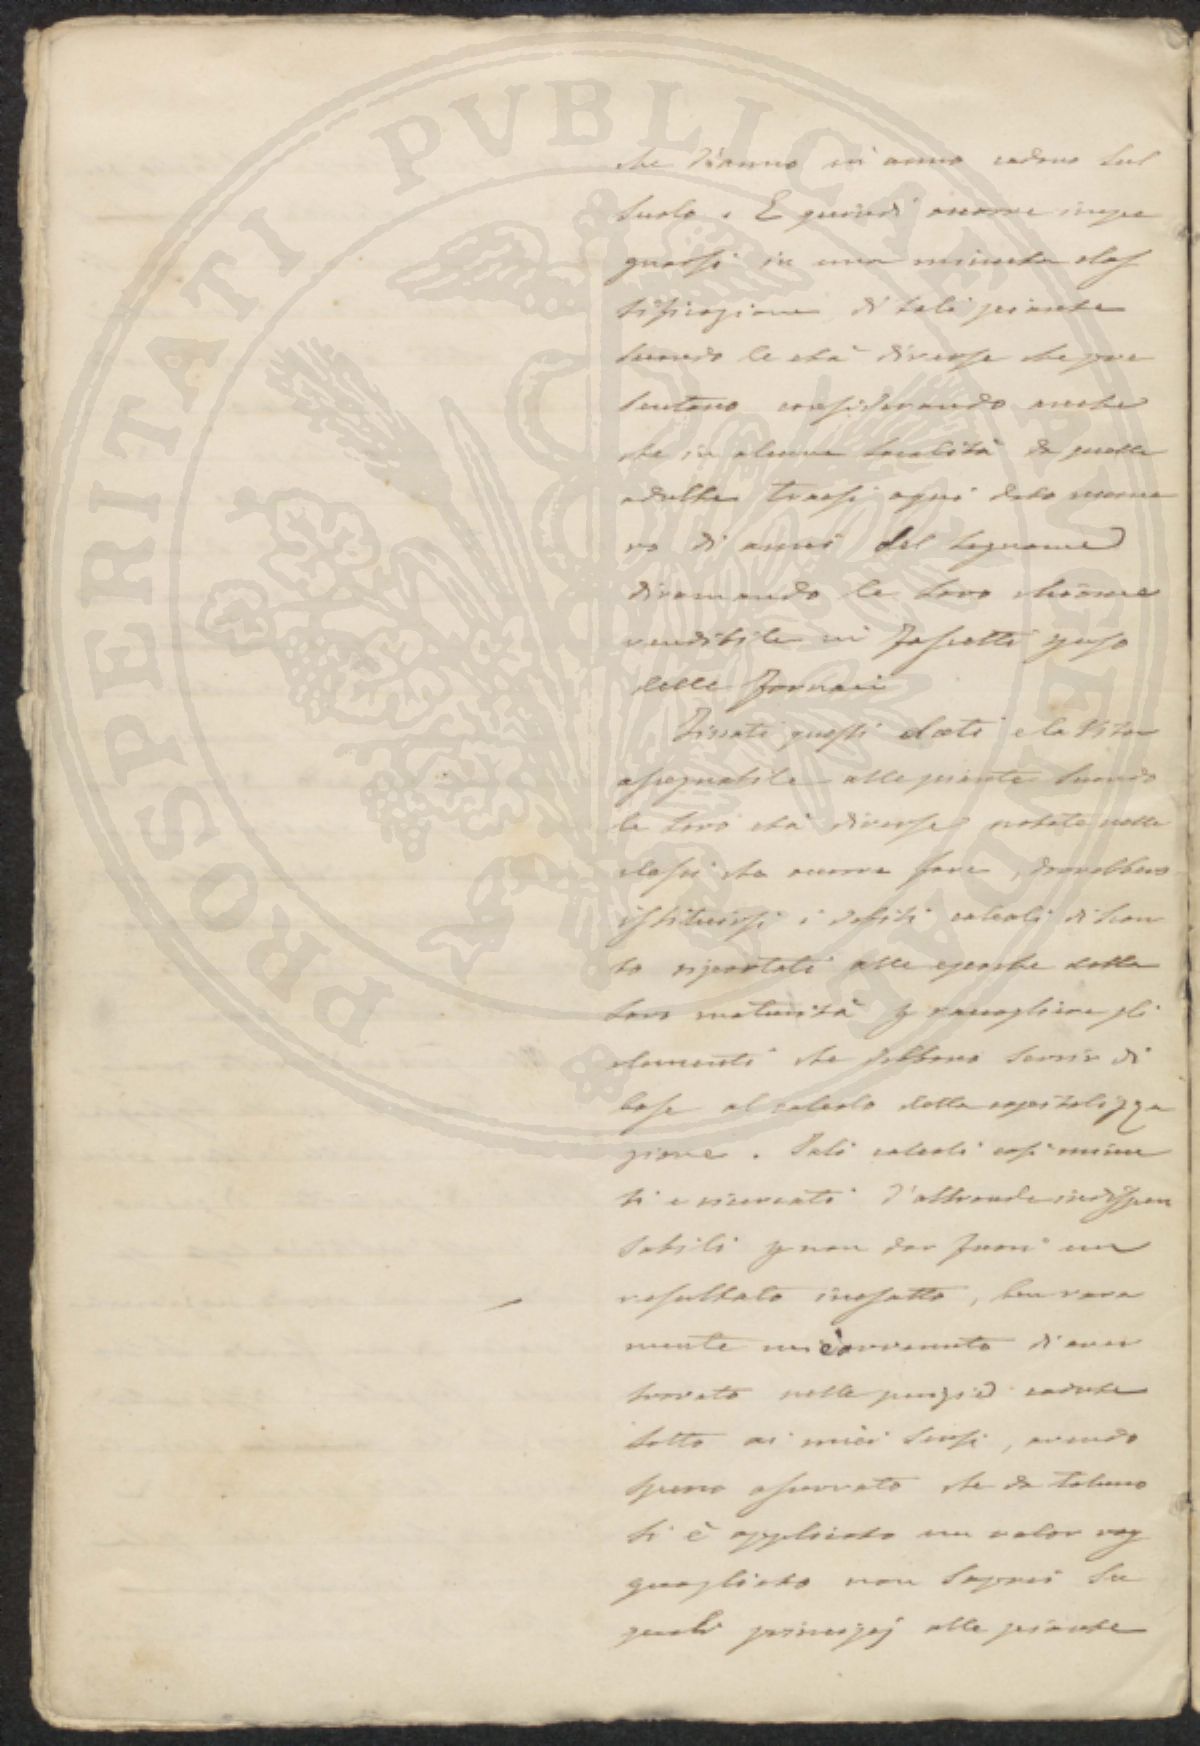 PROSPERITATI PVBLICAE AVGENDAE
che d'anno in anno cadono sul
suolo. E quindi occorre impe
gnarsi in una minuta clas
sificazione di tali piante
secondo le età diverse che pre
sentano considerando anche
che in alcune località da quelle
adulte traesi ogni dato nume
ro di anni del legname
diramando le loro chiome
vendibile in Fascetti per uso
delle Fornaci
Fissati questi dati e la Vita
assegnabile alle piante secondo
le loro età diverse notate nelle
classi che occorre fare, dovrebbero
istituirsi i debiti calcoli di scon
to riportati alle epoche della
loro maturità per raccogliere gli
elementi che debbono servir di
base al calcolo della capitalizza
zione. Tali calcoli così minu
ti e ricercati d'altronde indispen
sabili per non dar fuori un
resultato inesatto, ben rara
mente mi è avvenuto di aver
trovato nelle perizie cadute
sotto ai miei sensi, avendo
spesso osservato che da taluno
si è applicato un valor rag
guagliato non saprei su
quali principj alle piante